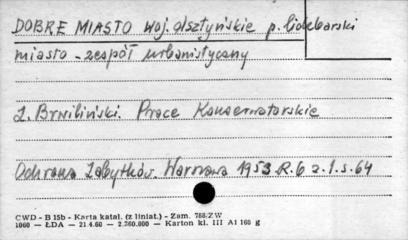 DOBRE MIASTO woj. olsztyńskie p. lidzbarski
miasto - zespół urbanistyczny
J. Brwiliński. Prace Konserwatorskie
Ochrona Zabytków. Warszawa 1953 R. 6 z. 1. s. 64
CWD - B 15b - Karta katal. (z liniat.) - Zam. 788/ZW
1060 — ŁDA — 21.4.60 — 2.360.000 — Karton kl. III A1 160 g